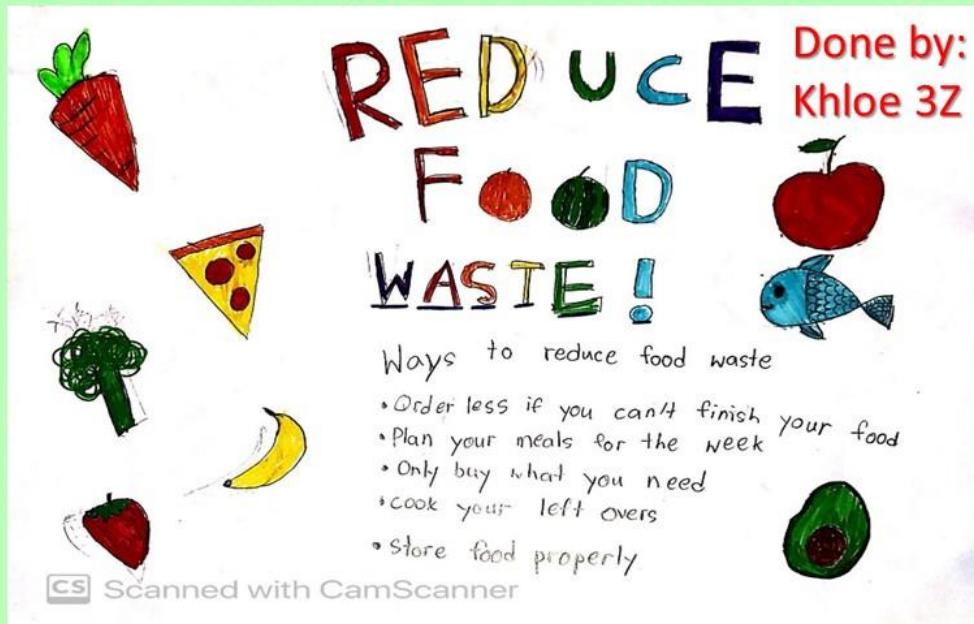 REDUCE
FOOD
WASTE!
Done by:
Khloe 3Z
Ways to reduce food waste
• Order less if you can't finish your food
• Plan your meals for the week
• Only buy what you need
• Cook your left overs
• Store food properly
CS Scanned with CamScanner